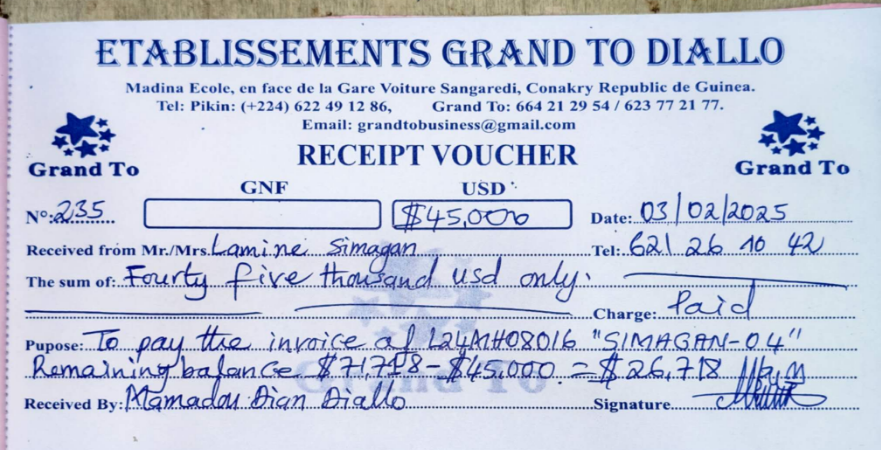 ETABLISSEMENTS GRAND TO DIALLO
Madina Ecole, en face de la Gare Voiture Sangaredi, Conakry Republic de Guinea.
Tel: Pikin: (+224) 622 49 12 86, Grand To: 664 21 29 54 / 623 77 21 77.
Email: grandtobusiness@gmail.com
Grand To RECEIPT VOUCHER Grand To
GNF USD
N°: 235 $45,000 Date: 03/02/2025
Received from Mr./Mrs. Lamine Simagan Tel: 621 26 10 42
The sum of: Fourty five thousand usd only.
Charge: Paid
Pupose: To pay the invoice of L24MH08016 "SIMAGAN-04"
Remaining balance $71,718 - $45,000 = $26,718
Received By: Mamadou Dian Diallo Signature
Grand To